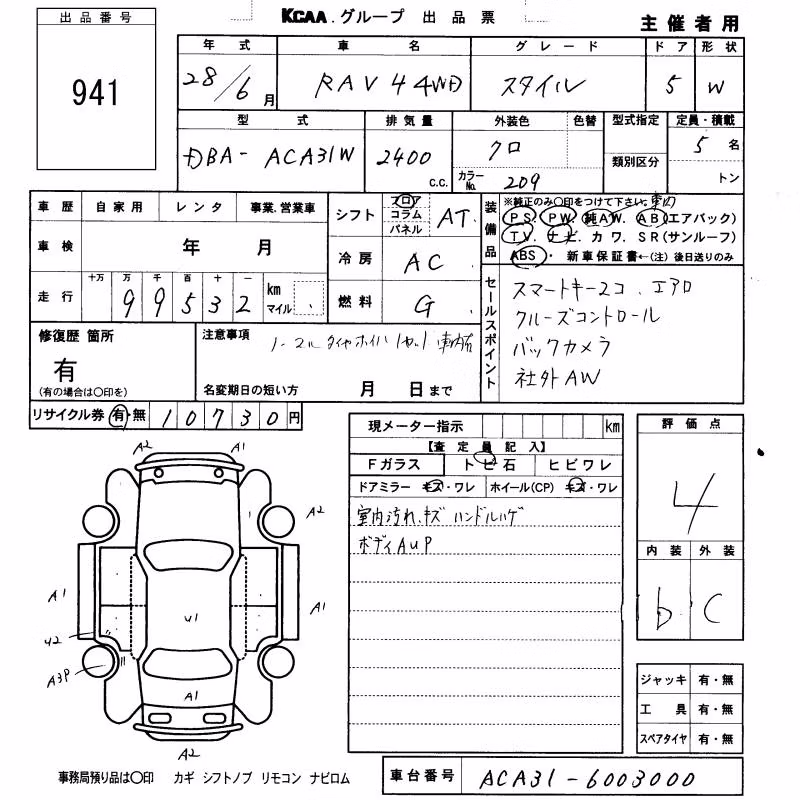 出品番号
941
KCAA.グループ 出品票
主催者用
年式 車名 グレード ドア 形状
28/6月 RAV4 4WD スタイル 5 W
型式 排気量 外装色 色替 型式指定 定員・積載
DBA- ACA31W 2400 c.c. クロ カラーNo. 209 類別区分 5名
トン
車歴 自家用 レンタ 事業.営業車
車検 年 月
走行 十万 万 千 百 十 一 km マイル
99532
シフト フロア コラム パネル AT
冷房 AC
燃料 G
装備品
※純正のみ〇印をつけて下さい。
PS. PW. 純AW. AB(エアバック)
TV. ナビ. カワ. SR(サンルーフ)
ABS・ 新車保証書←(注) 後日送りのみ
セールスポイント
スマートキー2コ.エアロ
クルーズコントロール
バックカメラ
社外AW
修復歴 箇所
有
(有の場合は〇印を)
注意事項
ノーマルタイヤホイル1セット車内右
名変期日の短い方 月 日まで
リサイクル券 有 無 10730円
現メーター指示 km
【査定員記入】
Fガラス トビ石 ヒビワレ
ドアミラー キズ・ワレ ホイール(CP) キズ・ワレ
室内汚れ.キズ ハンドルハゲ
ボディAUP
評価点
4
内装 外装
b C
A2 A1
A2
A1 A1
U1
U2
A3P
A1
A2
ジャッキ 有・無
工具 有・無
スペアタイヤ 有・無
事務局預り品は〇印 カギ シフトノブ リモコン ナビロム
車台番号 ACA31-6003000